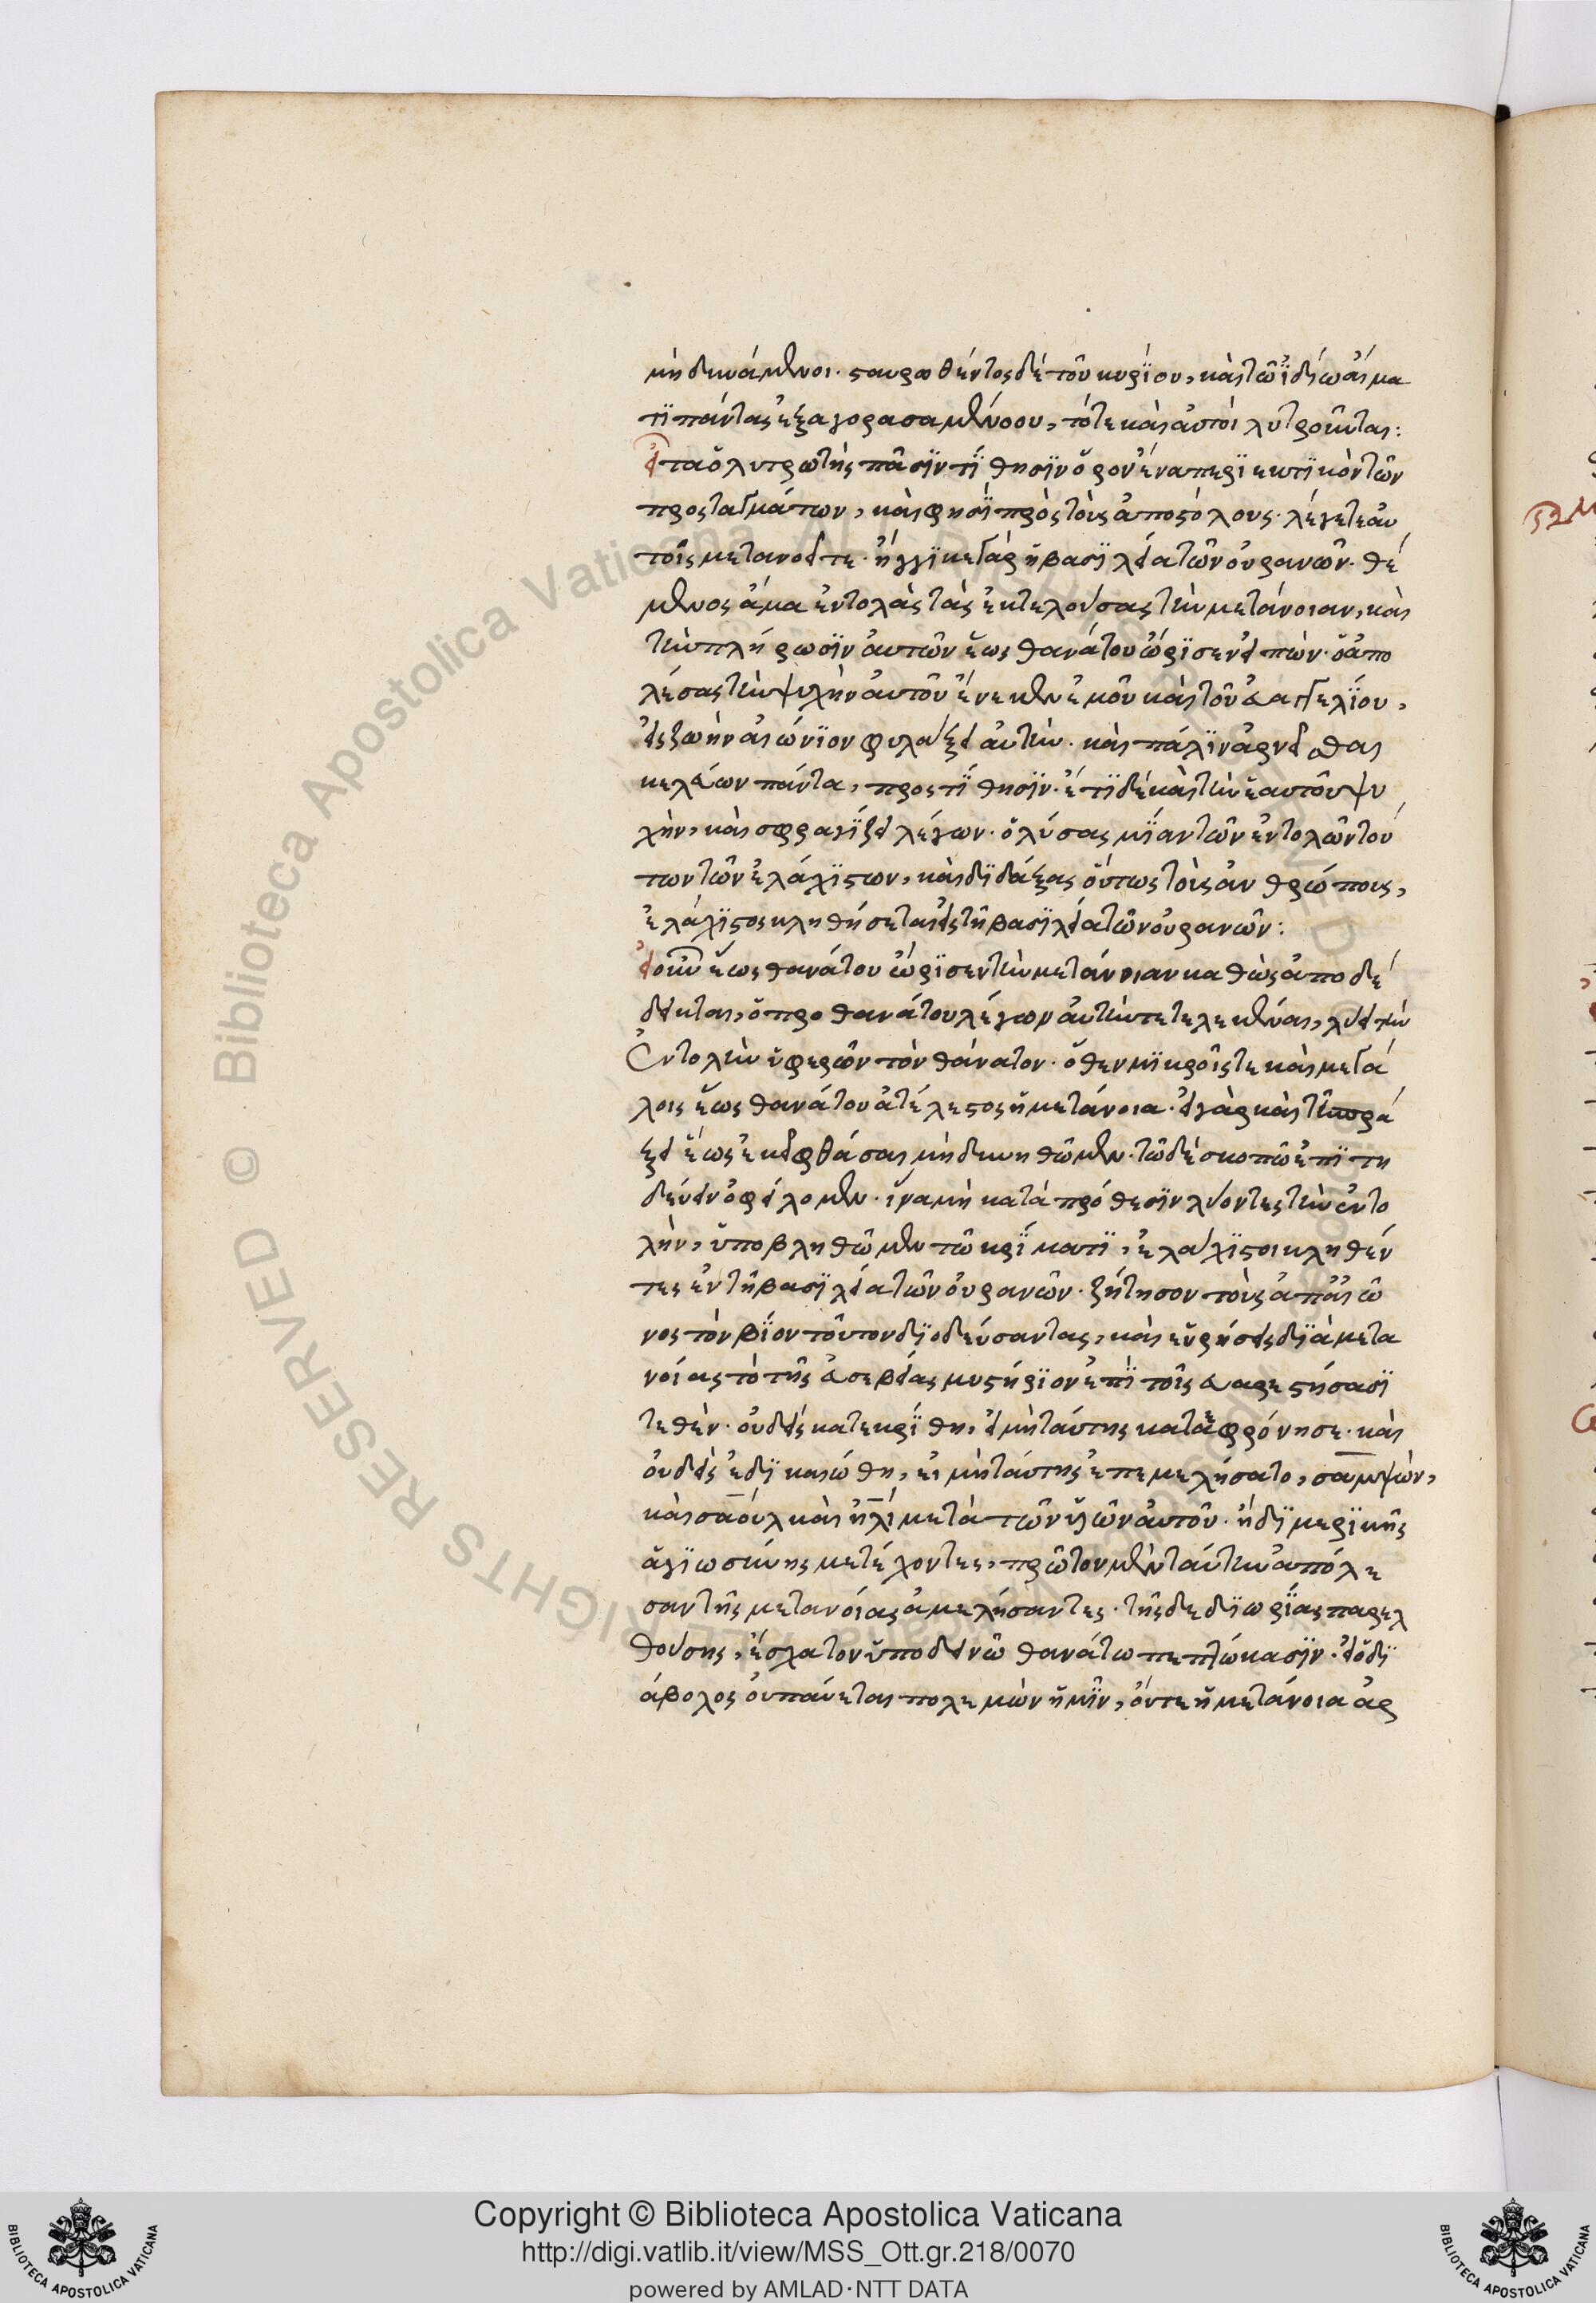 μὴ δυνάμενοι· σταυρωθέντος δὲ τοῦ κυρΐου, καὶ τῶ ϊδίω αἵμα
τϊ πάντας ἐξαγορασαμένου, τότε καὶ αὐτοὶ λυτροῦνται:
εἶτα ὁ λυτρωτὴς πᾶσϊν τΐθησϊν ὅρον ἕνα περϊεκτϊκὸν τῶν
προσταγμάτων, καὶ φησῒ πρὸς τοὺς ἀποστόλους· λέγετε αὐ
τοῖς μετανοεῖτε· ἤγγϊκε γὰρ ἡ βασϊλεία τῶν οὐρανῶν· θέ
μενος ἅμα ἐντολὰς τὰς ἐκτελούσας τὴν μετάνοιαν, καὶ
τὴν πλήρωσϊν αὐτῶν ἕως θανάτου ὥρϊσεν εἰπών· ὁ ἀπο
λέσας τὴν ψυχὴν αὐτοῦ ἕνεκεν ἐμοῦ καὶ τοῦ εὐαγγελΐου,
εἰς ζωὴν αἰώνϊον φυλάξει αὐτήν· καὶ πάλϊν ἀρνεῖσθαι
κελεύων πάντα, προστΐθησϊν· ἔτϊ δὲ καὶ τὴν ἑαυτοῦ ψυ
χὴν, καὶ σφραγΐζει λέγων· ὁ λύσας μΐαν τῶν ἐντολῶν τού
των τῶν ἐλαχΐστων, καὶ δϊδάξας οὕτως τοὺς ἀνθρώπους,
ἐλάχϊστος κληθήσεται εἰς τὴ βασϊλεία τῶν οὐρανῶν:
εἰ οὖν ἕως θανάτου ὥρϊσεν τὴν μετάνοιαν καθὼς ἀποδέ
δεικται, ὁ προ θανάτου λέγων αὐτὴν τετελεκέναι, λύει τὴν
Ἐντολὴν ὑφερῶν τὸν θάνατον· ὅθεν μϊκροῖς τε καὶ μεγά
λοις ἕως θανάτου ἀτέλεστος ἡ μετάνοια· εἰ γὰρ καὶ τῆ πρά
ξει ἕως ἐκεῖ φθάσαι μὴ δυνηθῶμεν· τῶ δὲ σκοπῶ ἐπϊτη
δεύειν ὀφείλομεν· ἵνα μὴ κατὰ πρόθεσϊν λύοντες τὴν ἐντο
λὴν, ὑποβληθῶμεν τῶ κρΐματϊ, ἐλάχϊστοι κληθέν
τες ἐν τῆ βασϊλεία τῶν οὐρανῶν· ζήτησον τοὺς ἀπ αἰῶ
νος τὸν βΐον τοῦτον δϊοδεύσαντας, καὶ εὑρήσεις δϊὰ μετα
νοίας τὸ τῆς εὐσεβείας μυστήρϊον ἐπῒ τοῖς εὐαρεστήσασϊ
τεθὲν· οὐδεὶς κατεκρΐθη, εἰ μὴ ταύτης κατεφρόνησε· καὶ
οὐδεὶς ἐδϊκαιώθη, εἰ μὴ ταύτης ἐπεμελήσατο, σαμψὼν,
καὶ σαοὺλ καὶ ἠλὶ μετὰ τῶν ὑϊῶν αὐτοῦ· ἤδϊ μερϊκῆς
ἁγϊωσύνης μετέχοντες, πρῶτον μὲν ταύτην ἀπόλε
σαν τῆς μετανοίας ἀμελήσαντες· τῆς δε δϊωρΐας παρελ
θούσης, ἔσχατον ὑπο δεινῶ θανάτω πεπτώκασϊν· εἰ ὁ δϊ
άβολος οὐ παύεται πολεμὼν ἡμῖν, οὔτε ἡ μετάνοια ἀρ